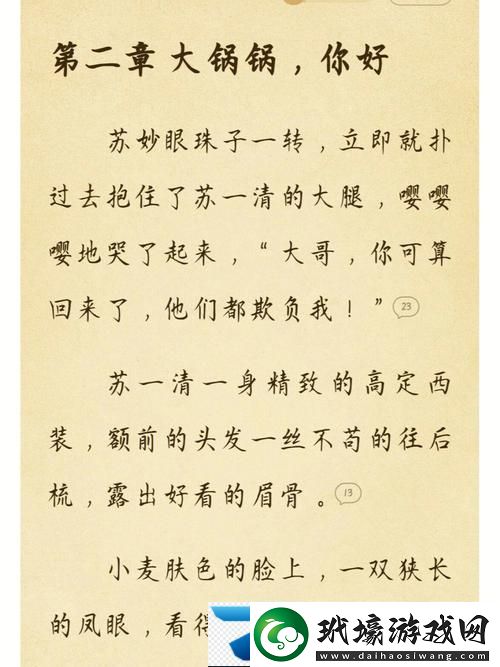 第二章 大锅锅，你好
苏妙眼珠子一转，立即就扑
过去抱住了苏一清的大腿，嘤嘤
嘤地哭了起来，“大哥，你可算
回来了，他们都欺负我！” 23
苏一清一身精致的高定西
装，额前的头发一丝不苟的往后
梳，露出好看的眉骨。 13
小麦肤色的脸上，一双狭长
的凤眼，看得
玳壕游戏网
www.daihaosiwang.com